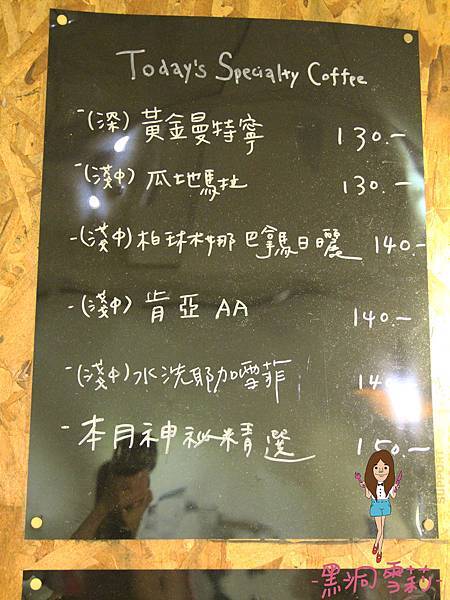 Today's Specialty Coffee
-(深) 黃金曼特寧 130.-
-(淺中) 瓜地馬拉 130.-
-(淺中) 柏林娜 巴拿馬日曬 140.-
-(淺中) 肯亞 AA 140.-
-(淺中) 水洗耶加雪菲 140.-
-本月神祕精選 150.-
-黑洞雪莉-